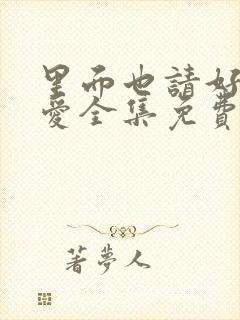 里而也請好
愛全集免費
著夢人